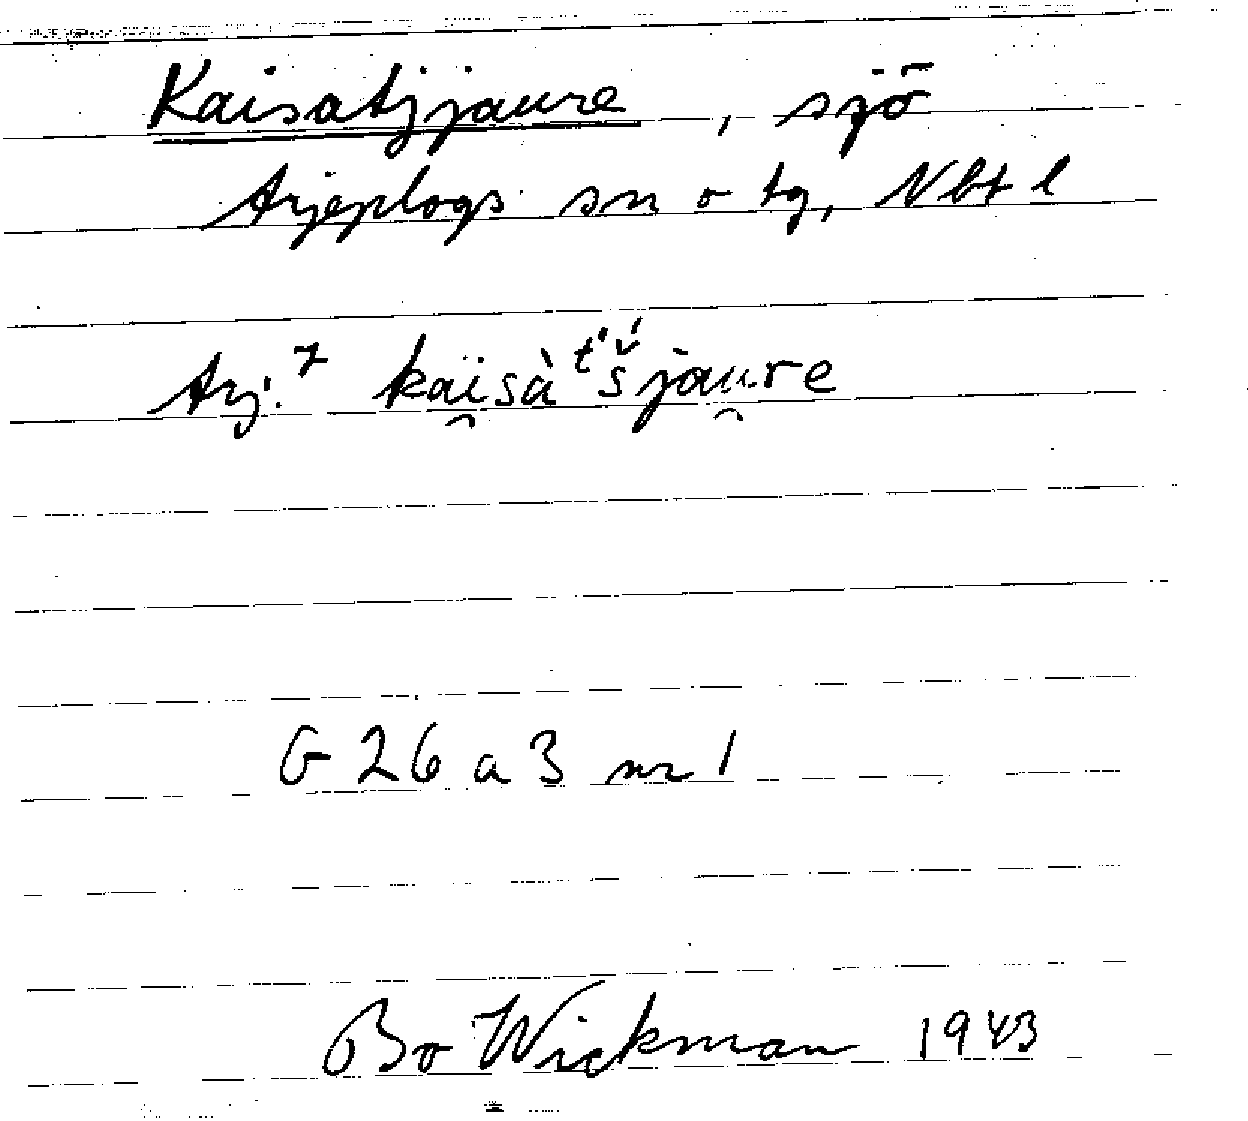 Kaisatjjaure, sjö
Arjeplogs sn o tg, Nbt l
Arj.7 kai̯sàt'š́jau̯re
G 26 a 3 nr 1
Bo Wickman 1943